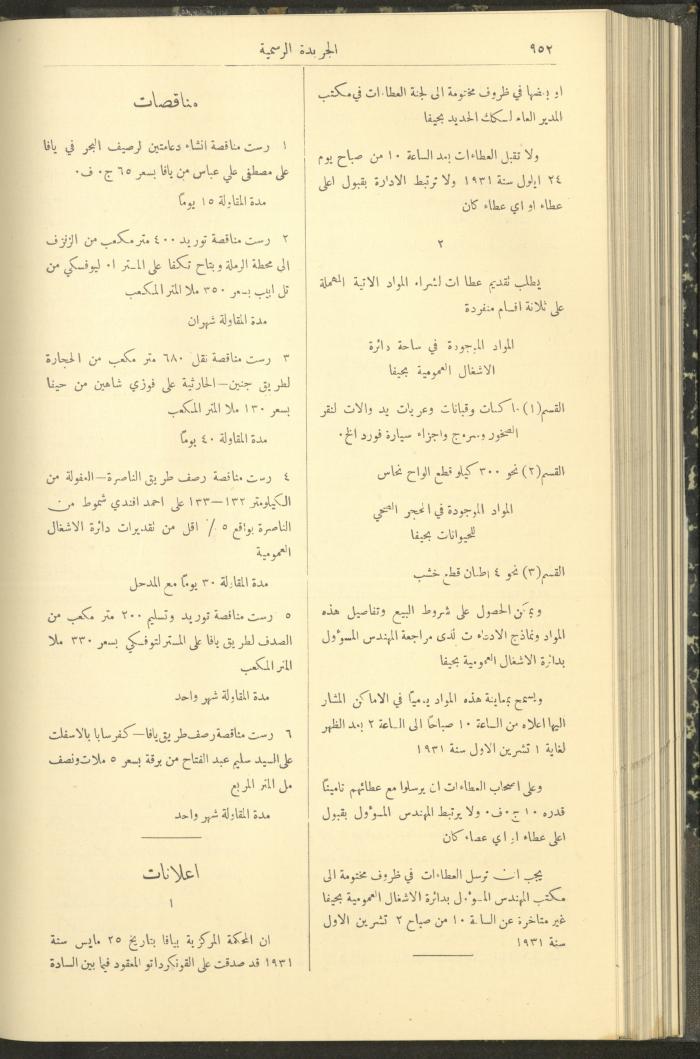 ٩٥٢
الجريدة الرسمية
او بعضها في ظروف مختومة الى لجنة العطاءات في مكتب
المدير العام لسكك الحديد بحيفا
ولا تقبل العطاءات بعد الساعة ١٠ من صباح يوم
٢٤ ايلول سنة ١٩٣١ ولا ترتبط الادارة بقبول اعلى
عطاء او اي عطاء كان
٢
يطلب تقديم عطاءات لشراء المواد الاتية المهملة
على ثلاثة اقسام منفردة
المواد الموجودة في ساحة دائرة
الاشغال العمومية بحيفا
القسم (١) تاكسات وقبانات وعربات يد والات لنقر
الصخور وسروج واجزاء سيارة فورد الخ.
القسم (٢) نحو ٣٠٠ كيلو قطع الواح نحاس
المواد الموجودة في الحجر الصحي
للحيوانات بحيفا
القسم (٣) نحو ٤ اطنان قطع خشب
ويمكن الحصول على شروط البيع وتفاصيل هذه
المواد ونماذج الادعاءات لدى مراجعة المهندس المسؤول
بدائرة الاشغال العمومية بحيفا
ويسمح بمعاينة هذه المواد يوميًا في الاماكن المشار
اليها اعلاه من الساعة ١٠ صباحًا الى الساعة ٢ بعد الظهر
لغاية ١ تشرين الاول سنة ١٩٣١
وعلى اصحاب العطاءات ان يرسلوا مع عطائهم تامينًا
قدره ١٠ ج.ف. ولا يرتبط المهندس المسؤول بقبول
اعلى عطاء او اي عطاء كان
يجب ان ترسل العطاءات في ظروف مختومة الى
مكتب المهندس المسؤول بدائرة الاشغال العمومية بحيفا
غير متاخرة عن الساعة ١٠ من صباح ٢ تشرين الاول
سنة ١٩٣١
مناقصات
١ رست مناقصة انشاء دعامتين لرصيف البحر في يافا
على مصطفى علي عباس من يافا بسعر ٦٥ ج.ف.
مدة المقاولة ١٥ يومًا
٢ رست مناقصة توريد ٤٠٠ متر مكعب من الزفزف
الى محطة الرملة وبتاح تكفا على المستر ا. ليوفسكي من
تل ابيب بسعر ٣٥٠ ملا المتر المكعب
مدة المقاولة شهران
٣ رست مناقصة نقل ٦٨٠ متر مكعب من الحجارة
لطريق جنين–الحارثية على فوزي شاهين من حيفا
بسعر ١٣٠ ملا المتر المكعب
مدة المقاولة ٤٠ يومًا
٤ رست مناقصة رصف طريق الناصرة–العفولة من
الكيلومتر ١٣٢–١٣٣ على احمد افندي شموط من
الناصرة بواقع ٥ ٪ اقل من تقديرات دائرة الاشغال
العمومية
مدة المقاولة ٣٠ يومًا مع المدحل
٥ رست مناقصة توريد وتسليم ٢٠٠ متر مكعب من
الصدف لطريق يافا على المستر لتوفسكي بسعر ٣٣٠ ملا
المتر المكعب
مدة المقاولة شهر واحد
٦ رست مناقصة رصف طريق يافا–كفرسابا بالاسفلت
على السيد سليم عبد الفتاح من برقة بسعر ٥ ملات ونصف
مل المتر المربع
مدة المقاولة شهر واحد
اعلانات
١
ان المحكمة المركزية بيافا بتاريخ ٢٥ مايس سنة
١٩٣١ قد صدقت على القونكرداتو المعقود فيما بين السادة